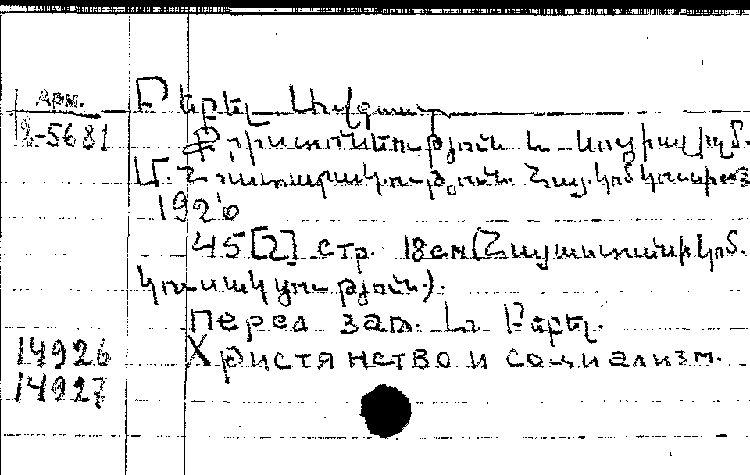 Арм.
12-5681
Բեբել Աւգուստ
Քրիստոնէութիւն և սոցիալիզմ.
Մ. Հրատարակութիւն Հայ. կոմ կուսակ
1920
45[2] стр. 18см (Հայաստանի կոմ.
կուսակցութիւն).
Перед заг. Ա. Բեբել.
14926 Христянство и социализм.
14927